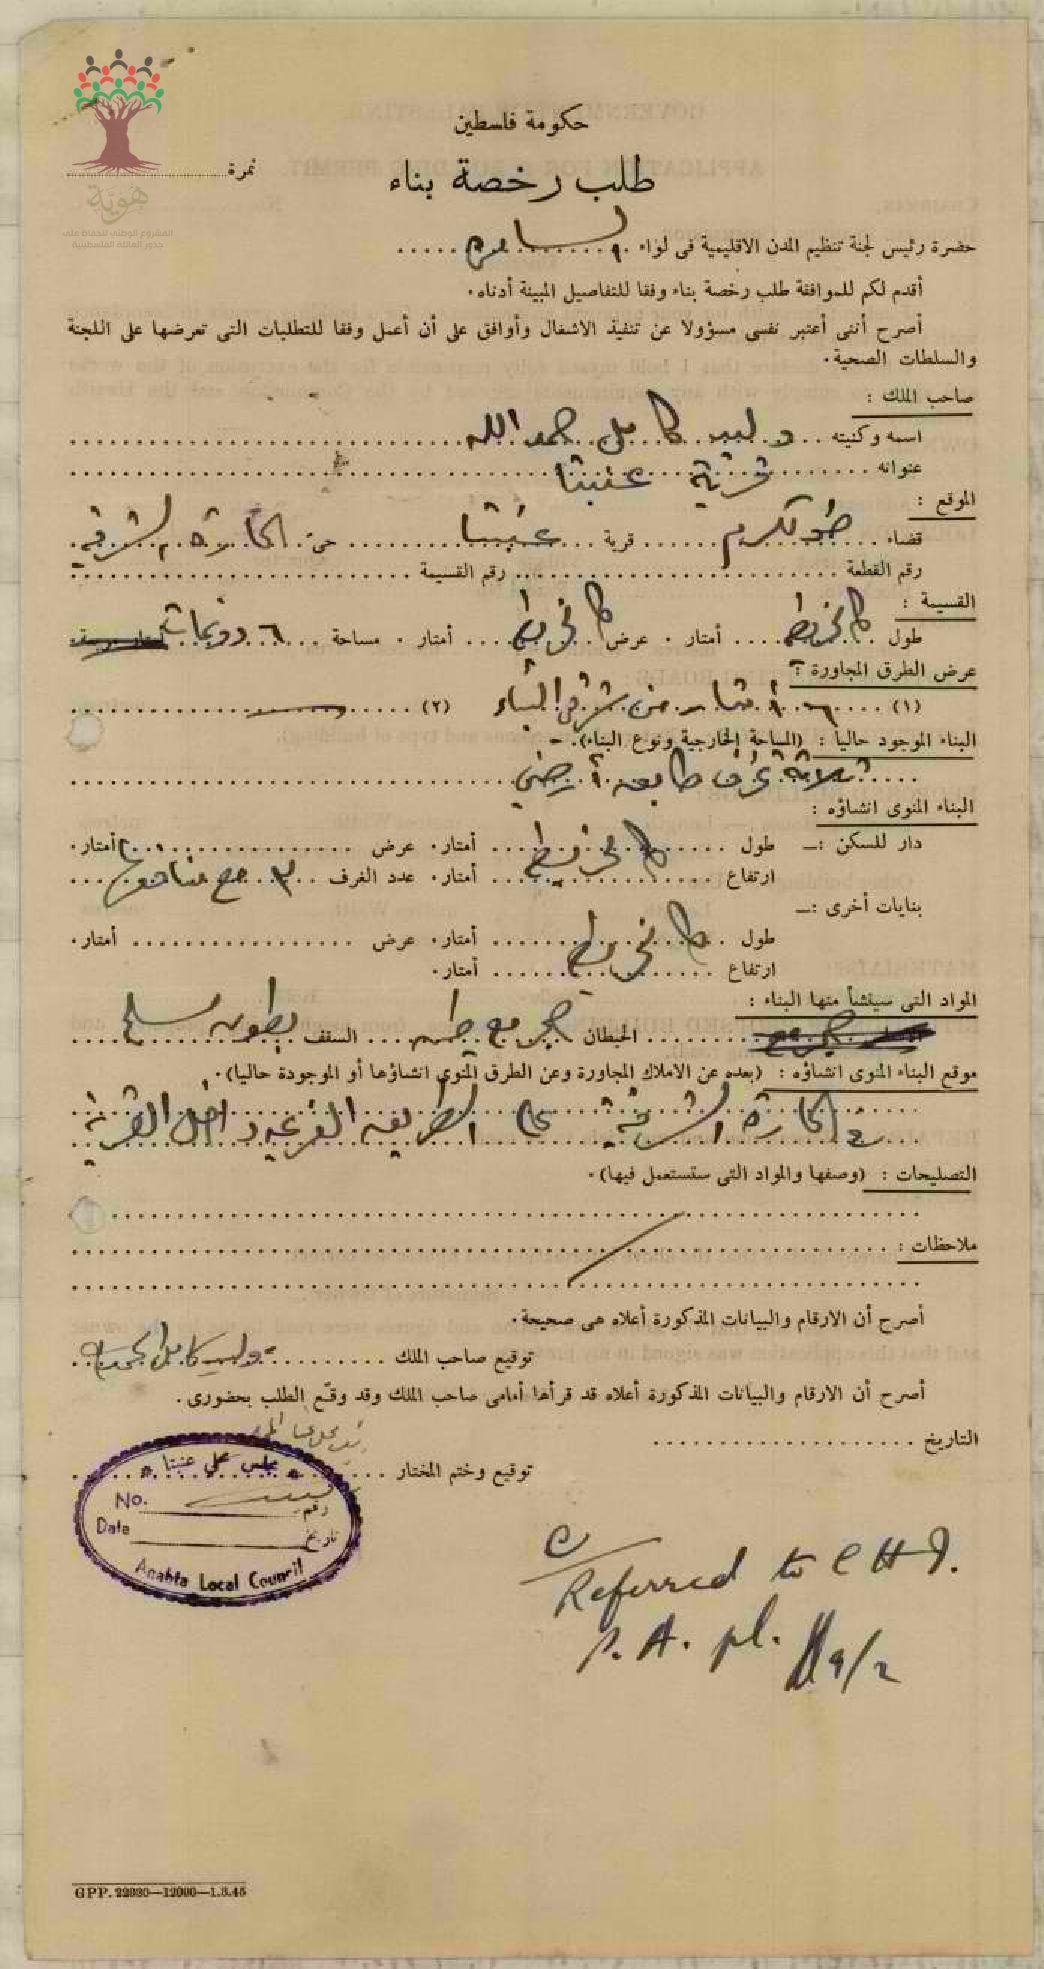 حكومة فلسطين
طلب رخصة بناء
نمرة
هوية
المشروع الوطني للحفاظ على
جذور العائلة الفلسطينية
حضرة رئيس لجنة تنظيم المدن الاقليمية في لواء السامره
أقدم لكم للموافقة طلب رخصة بناء وفقا للتفاصيل المبينة أدناه.
أصرح أننى أعتبر نفسى مسؤولا عن تنفيذ الاشغال وأوافق على أن أعمل وفقا للتطلبات التى تعرضها على اللجنة
والسلطات الصحية.
صاحب الملك :
اسمه وكنيته وليد كامل حمد الله
عنوانه قرية عنبتا
الموقع :
قضاء طولكرم قرية عنبتا حىّ الحارة الشرقية
رقم القطعة رقم القسيمة
القسيمة :
طول كالخريطه أمتار. عرض كالخريطه أمتار. مساحة ٦ دونمات
عرض الطرق المجاورة :
(١) ٦ أمتار من شرقي البناء (٢)
البناء الموجود حاليا : (المساحة الخارجية ونوع البناء).
ثلاثة غرف طابق أرضي
البناء المنوى انشاؤه :
دار للسكن :— طول كالخريطه أمتار. عرض أمتار.
ارتفاع أمتار. عدد الغرف ٣ مع منافعها
بنايات أخرى :—
طول كالخريطه أمتار. عرض أمتار.
ارتفاع أمتار.
المواد التى سينشأ منها البناء :
الحيطان حجر مع طين السقف بطون مسلح
موقع البناء المنوى انشاؤه : (بعده عن الاملاك المجاورة وعن الطرق المنوى انشاؤها أو الموجودة حاليا).
في الحارة الشرقية على الطريق الفرعيه داخل القرية
التصليحات : (وصفها والمواد التى ستستعمل فيها).
ملاحظات :
أصرح أن الارقام والبيانات المذكورة أعلاه هى صحيحة.
توقيع صاحب الملك وليد كامل الحمدالله
أصرح أن الارقام والبيانات المذكورة أعلاه قد قرأها أمامى صاحب الملك وقد وقّع الطلب بحضورى.
التاريخ
توقيع وختم المختار
مجلس محلي عنبتا
No. رقم
Date تاريخ
Anabta Local Council
Referred to C H I.
9/2
GPP. 22030—12000—1.3.45